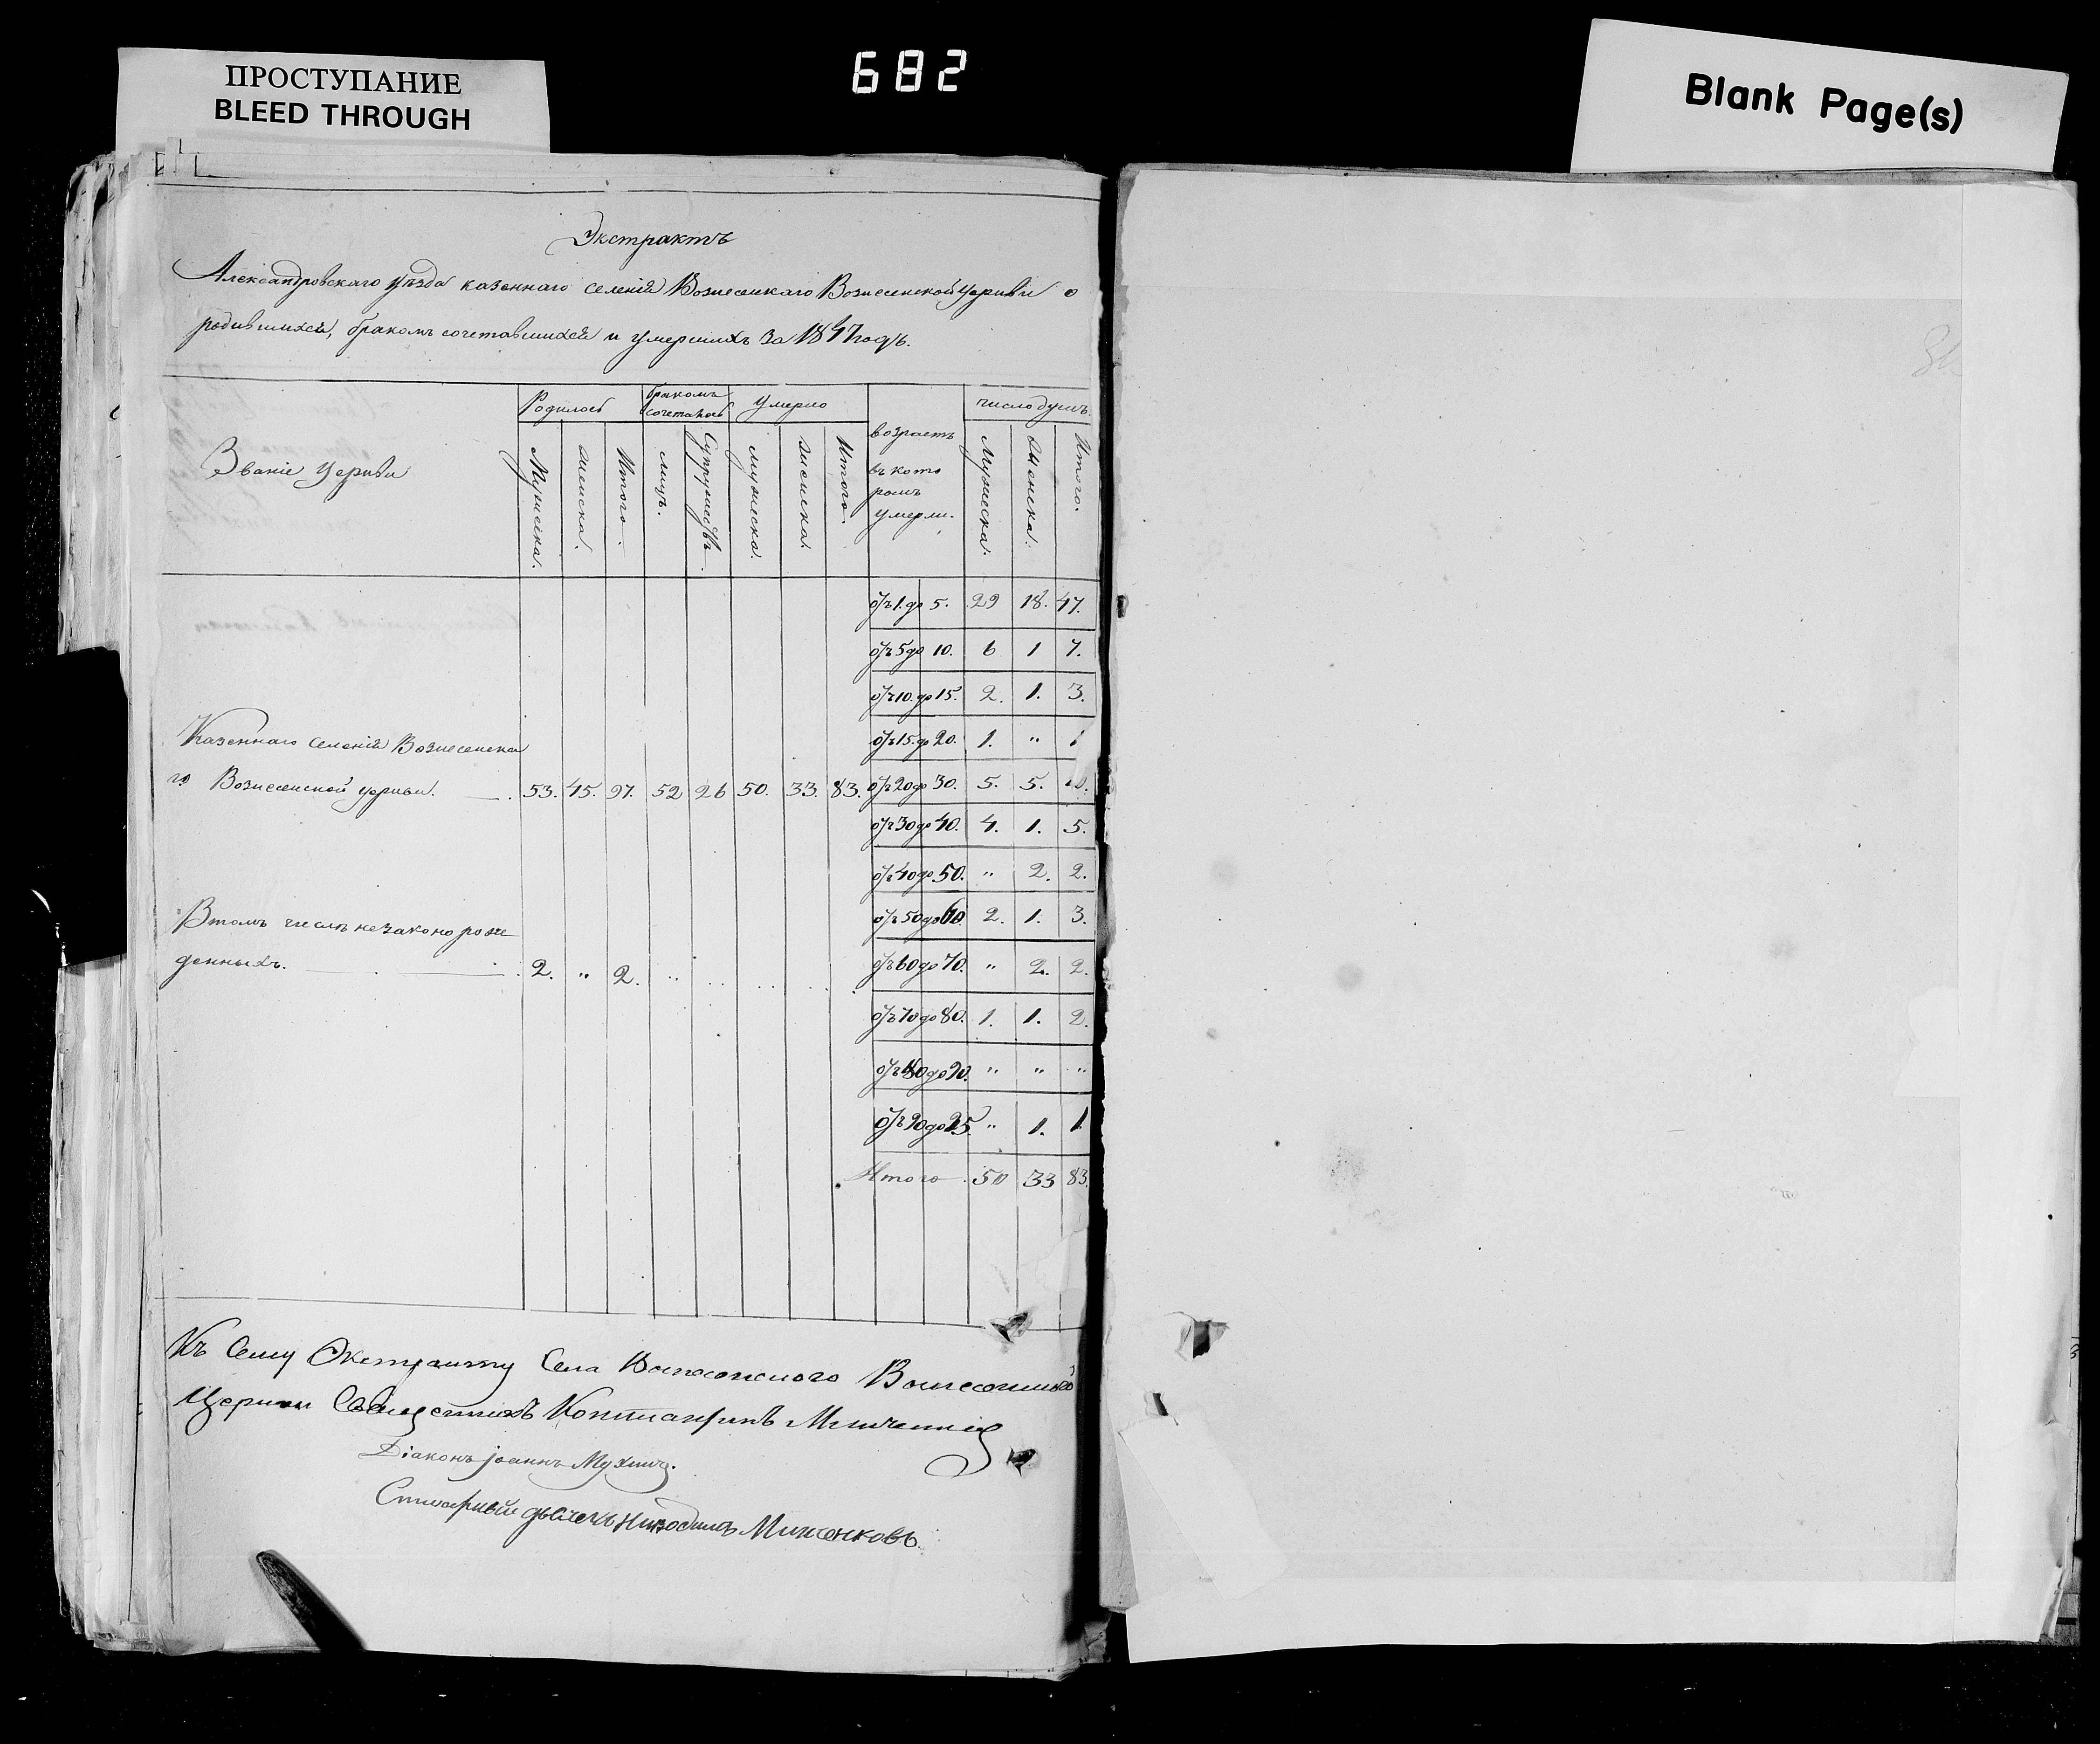 ПРОСТУПАНИЕ
BLEED THROUGH
682
Blank Page(s)
Экстрактъ
Александровскаго уѣзда казеннаго селенія Вознесенкаго Вознесенской Церкви о
родившихся, бракомъ сочетавшихся и умершихъ за 1847 годъ.
Званіе Церкви
Родилось бракомъ сочеталось умерло возрастъ въ кото ромъ умерли. число душъ.
Мужеска. женска. Итого. лицъ. Супружествъ. мужеска. женска. Итого. Мужеска. Женска. Итого.
отъ 1. до 5. 29 18. 47.
отъ 5 до 10. 6 1 7.
отъ 10. до 15. 2. 1. 3.
отъ 15. до 20. 1. " 1
Казеннаго селенія Вознесенска
го Вознесенской церкви. 53. 45. 97. 52 26 50. 33. 83. отъ 20 до 30. 5. 5. 10.
отъ 30 до 40. 4. 1. 5.
отъ 40 до 50. " 2. 2.
отъ 50 до 60 2. 1. 3.
Втомъ числѣ незаконорож
денныхъ. 2. " 2. " отъ 60 до 70. " 2. 2.
отъ 70 до 80. 1. 1. 2.
отъ 80 до 90. " " "
отъ 90 до 95. " 1. 1.
Итого 50 33 83.
Къ Сему Экстракту Села Вознесенского Вознесенской
Церкви Священникъ Константинъ
Діаконъ Іоаннъ Мухинъ.
дьячекъ Никодимъ Мишенковъ.